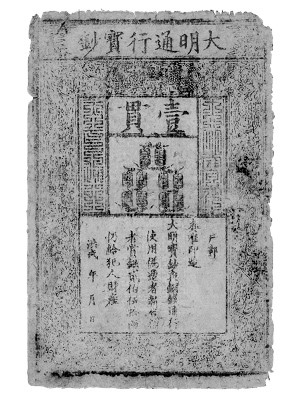 大明通行寶鈔
壹貫
戶部
奏准印造
大明寶鈔與銅錢通行
使用偽造者斬告
者賞銀貳伯伍拾兩
仍給犯人財產
洪武 年 月 日